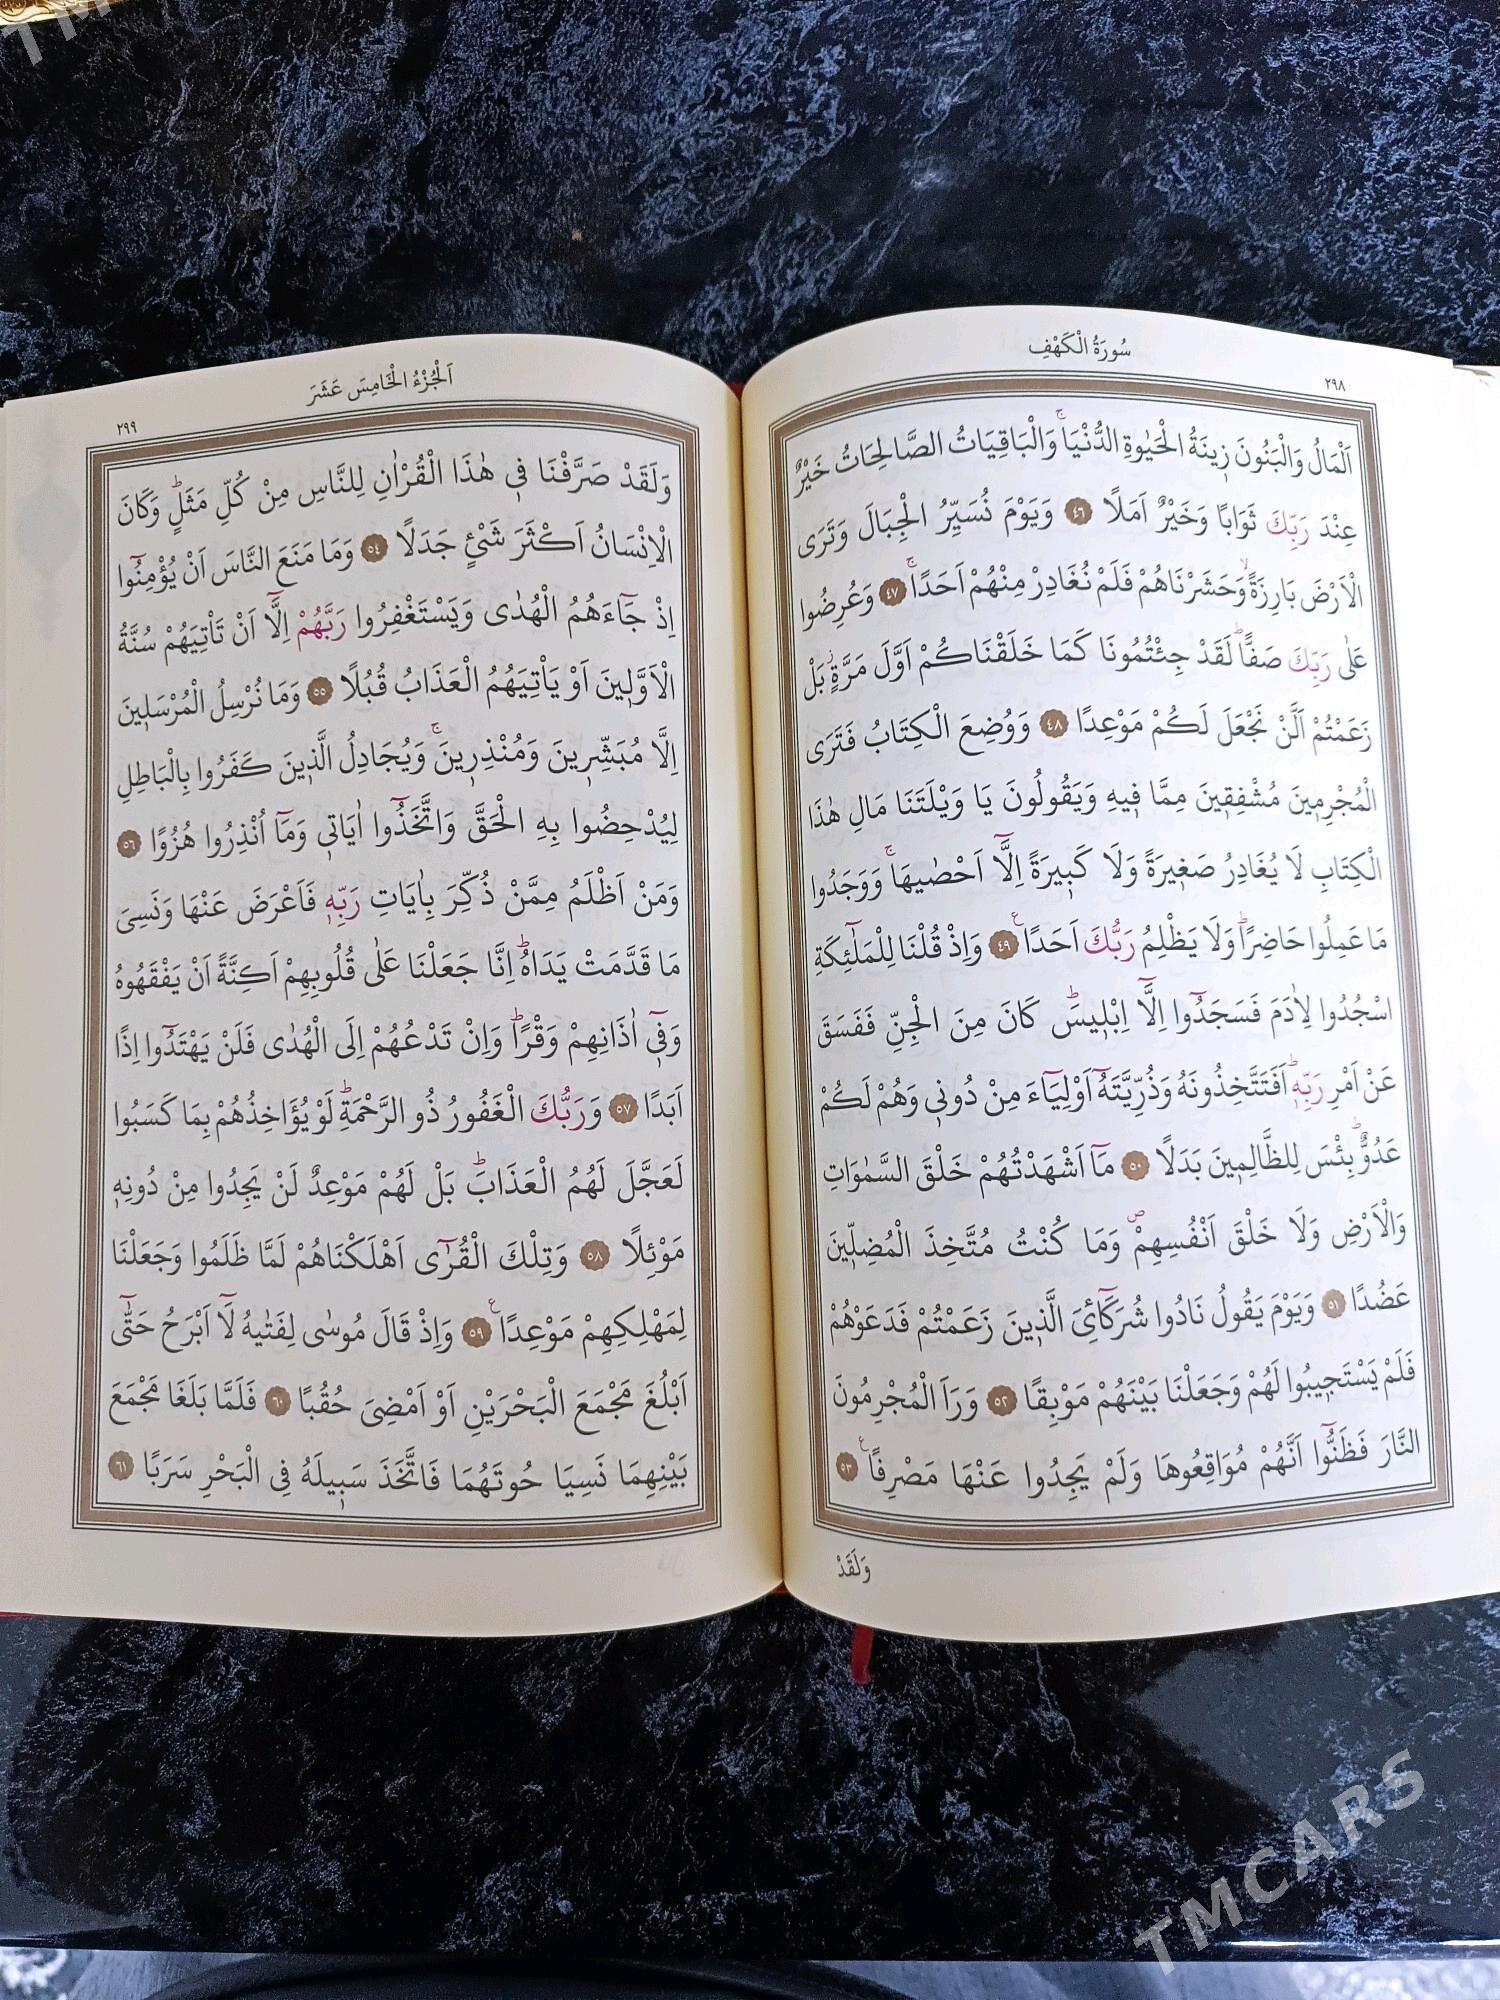 سُورَةُ الْكَهْفِ
٢٩٨
اَلْمَالُ وَالْبَنُونَ زِينَةُ الْحَيٰوةِ الدُّنْيَاۚ وَالْبَاقِيَاتُ الصَّالِحَاتُ خَيْرٌ
عِنْدَ رَبِّكَ ثَوَابًا وَخَيْرٌ اَمَلًا ﴿٤٦﴾ وَيَوْمَ نُسَيِّرُ الْجِبَالَ وَتَرَى
الْاَرْضَ بَارِزَةًۙ وَحَشَرْنَاهُمْ فَلَمْ نُغَادِرْ مِنْهُمْ اَحَدًاۚ ﴿٤٧﴾ وَعُرِضُوا
عَلٰى رَبِّكَ صَفًّاۜ لَقَدْ جِئْتُمُونَا كَمَا خَلَقْنَاكُمْ اَوَّلَ مَرَّةٍۘ بَلْ
زَعَمْتُمْ اَلَّنْ نَجْعَلَ لَكُمْ مَوْعِدًا ﴿٤٨﴾ وَوُضِعَ الْكِتَابُ فَتَرَى
الْمُجْرِمِينَ مُشْفِقِينَ مِمَّا فِيهِ وَيَقُولُونَ يَا وَيْلَتَنَا مَالِ هٰذَا
الْكِتَابِ لَا يُغَادِرُ صَغِيرَةً وَلَا كَبِيرَةً اِلَّٓا اَحْصٰيهَاۚ وَوَجَدُوا
مَا عَمِلُوا حَاضِرًاۜ وَلَا يَظْلِمُ رَبُّكَ اَحَدًاۧ ﴿٤٩﴾ وَاِذْ قُلْنَا لِلْمَلٰٓئِكَةِ
اسْجُدُوا لِاٰدَمَ فَسَجَدُٓوا اِلَّٓا اِبْلِيسَۜ كَانَ مِنَ الْجِنِّ فَفَسَقَ
عَنْ اَمْرِ رَبِّهِۜ اَفَتَتَّخِذُونَهُ وَذُرِّيَّتَهُٓ اَوْلِيَٓاءَ مِنْ دُونِي وَهُمْ لَكُمْ
عَدُوٌّۜ بِئْسَ لِلظَّالِمِينَ بَدَلًا ﴿٥٠﴾ مَٓا اَشْهَدْتُهُمْ خَلْقَ السَّمٰوَاتِ
وَالْاَرْضِ وَلَا خَلْقَ اَنْفُسِهِمْۖ وَمَا كُنْتُ مُتَّخِذَ الْمُضِلِّينَ
عَضُدًا ﴿٥١﴾ وَيَوْمَ يَقُولُ نَادُوا شُرَكَٓائِيَ الَّذِينَ زَعَمْتُمْ فَدَعَوْهُمْ
فَلَمْ يَسْتَجِيبُوا لَهُمْ وَجَعَلْنَا بَيْنَهُمْ مَوْبِقًا ﴿٥٢﴾ وَرَاَ الْمُجْرِمُونَ
النَّارَ فَظَنُّٓوا اَنَّهُمْ مُوَاقِعُوهَا وَلَمْ يَجِدُوا عَنْهَا مَصْرِفًاۧ ﴿٥٣﴾
وَلَقَدْ
اَلْجُزْءُ الْخَامِسَ عَشَرَ
٢٩٩
وَلَقَدْ صَرَّفْنَا فِي هٰذَا الْقُرْاٰنِ لِلنَّاسِ مِنْ كُلِّ مَثَلٍۜ وَكَانَ
الْاِنْسَانُ اَكْثَرَ شَيْءٍ جَدَلًا ﴿٥٤﴾ وَمَا مَنَعَ النَّاسَ اَنْ يُؤْمِنُٓوا
اِذْ جَٓاءَهُمُ الْهُدٰى وَيَسْتَغْفِرُوا رَبَّهُمْ اِلَّٓا اَنْ تَأْتِيَهُمْ سُنَّةُ
الْاَوَّلِينَ اَوْ يَأْتِيَهُمُ الْعَذَابُ قُبُلًا ﴿٥٥﴾ وَمَا نُرْسِلُ الْمُرْسَلِينَ
اِلَّا مُبَشِّرِينَ وَمُنْذِرِينَۚ وَيُجَادِلُ الَّذِينَ كَفَرُوا بِالْبَاطِلِ
لِيُدْحِضُوا بِهِ الْحَقَّ وَاتَّخَذُٓوا اٰيَاتِي وَمَٓا اُنْذِرُوا هُزُوًا ﴿٥٦﴾
وَمَنْ اَظْلَمُ مِمَّنْ ذُكِّرَ بِاٰيَاتِ رَبِّهِ فَاَعْرَضَ عَنْهَا وَنَسِيَ
مَا قَدَّمَتْ يَدَاهُۜ اِنَّا جَعَلْنَا عَلٰى قُلُوبِهِمْ اَكِنَّةً اَنْ يَفْقَهُوهُ
وَفِٓي اٰذَانِهِمْ وَقْرًاۜ وَاِنْ تَدْعُهُمْ اِلَى الْهُدٰى فَلَنْ يَهْتَدُٓوا اِذًا
اَبَدًا ﴿٥٧﴾ وَرَبُّكَ الْغَفُورُ ذُو الرَّحْمَةِۜ لَوْ يُؤَاخِذُهُمْ بِمَا كَسَبُوا
لَعَجَّلَ لَهُمُ الْعَذَابَۜ بَلْ لَهُمْ مَوْعِدٌ لَنْ يَجِدُوا مِنْ دُونِهِ
مَوْئِلًا ﴿٥٨﴾ وَتِلْكَ الْقُرٰٓى اَهْلَكْنَاهُمْ لَمَّا ظَلَمُوا وَجَعَلْنَا
لِمَهْلِكِهِمْ مَوْعِدًاۧ ﴿٥٩﴾ وَاِذْ قَالَ مُوسٰى لِفَتٰيهُ لَٓا اَبْرَحُ حَتّٰٓى
اَبْلُغَ مَجْمَعَ الْبَحْرَيْنِ اَوْ اَمْضِيَ حُقُبًا ﴿٦٠﴾ فَلَمَّا بَلَغَا مَجْمَعَ
بَيْنِهِمَا نَسِيَا حُوتَهُمَا فَاتَّخَذَ سَبِيلَهُ فِي الْبَحْرِ سَرَبًا ﴿٦١﴾
TMCARS